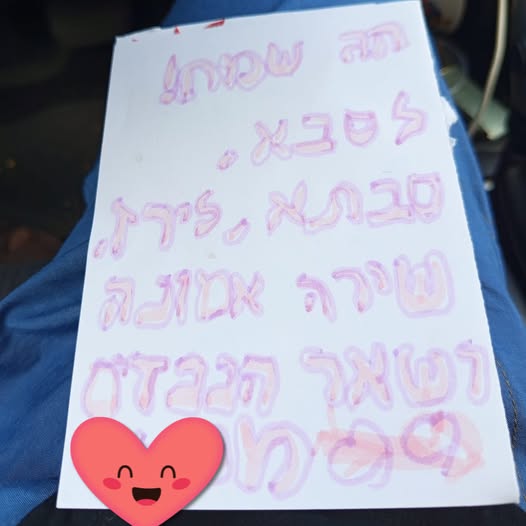 חג שמח!
לסבא,
סבתא, לירז,
שירה אמונה
ושאר הנכדים